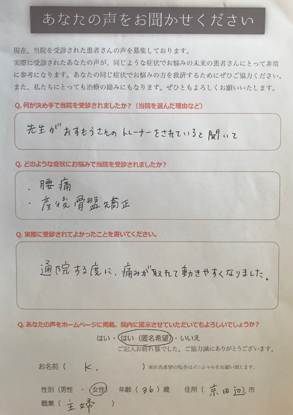 あなたの声をお聞かせください
現在、当院を受診された患者さんの声を募集しております。
実際に受診されたあなたの声が、同じような症状でお悩みの未来の患者さんにとって非常
に参考になります。あなたの同じ症状でお悩みの方を救済するためにぜひご協力ください。
また、私たちにとっても治療の励みにもなります。ぜひともよろしくお願いいたします。
Q. 何が決め手で当院を受診されましたか？（当院を選んだ理由など）
先生がおすもうさんのトレーナーをされていると聞いて
Q. どのような症状にお悩みで当院を受診されましたか？
・腰痛
・産後骨盤矯正
Q. 実際に受診されてよかったことを書いてください。
通院する度に、痛みが取れて動きやすくなりました。
Q. あなたの声をホームページに掲載、院内に掲示させていただいてもよろしいでしょうか？
はい・はい（匿名希望）・いいえ
ご記入お疲れ様でした。ご協力誠にありがとうございます。
お名前（ K. ）※匿名希望の場合はイニシャルをお願い致します。
性別（男性 ・ 女性） 年齢（36）歳 住所（京田辺）市
職業（ 主婦 ）